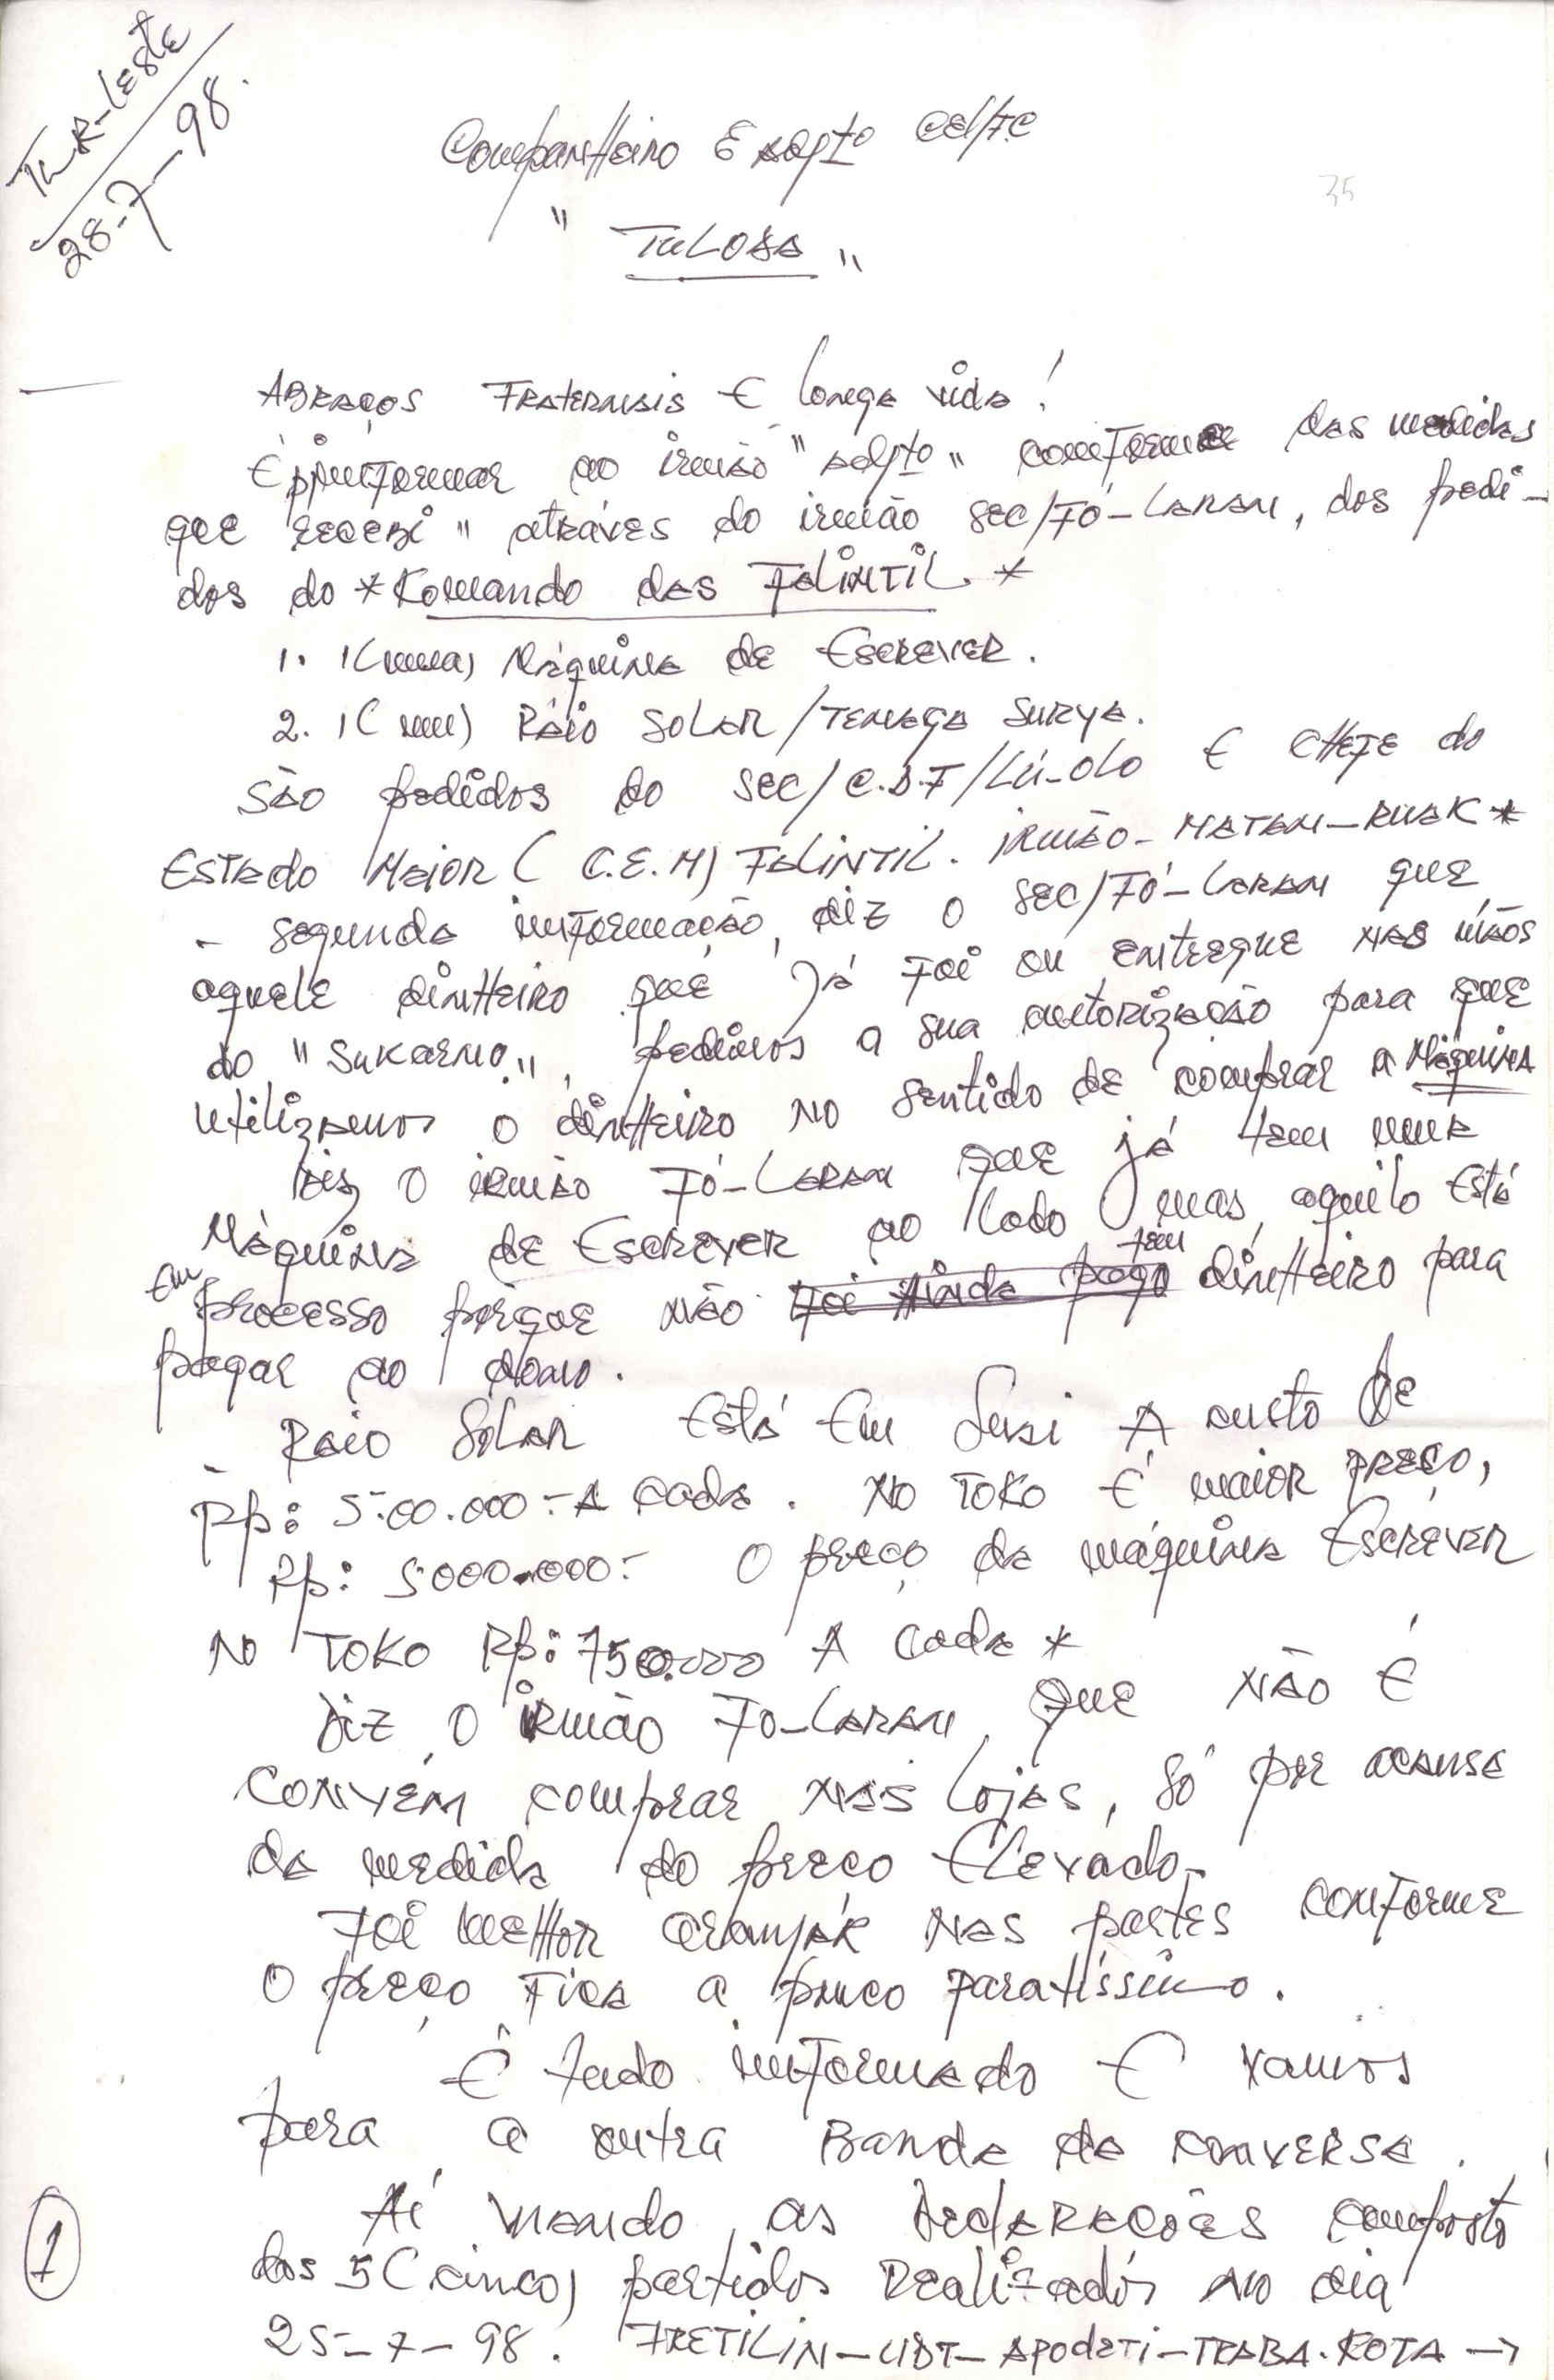 TMR-LESTE
28-7-98.
Companheiro E adpto CEL/FC
35
" TULODA "
ABRAÇOS FRATERNAIS E longa vida!
É p/informar ao irmão "adpto" conforme das medidas
que recebi " atráves do irmão SEC/FÓ-LARAN, dos pedi-
dos do *Komando das FALINTIL *
1. 1(uma) Máquina de Escrever.
2. 1(um) RÁIO SOLAR/TENAGA SURYA.
São pedidos do SEC/C.D.F/LÚ-OLO E CHEFE do
ESTADO MAIOR (C.E.M) FALINTIL. iRMÃO-MATAN-RUAK*
- segunda informação, diz o SEC/FÓ-LARAN que,
aquele dinheiro que já foi ou entregue nas mãos
do "SUKARNO", pedimos a sua autorização para que
utilizamos o dinheiro no sentido de comprar a Máquina
Diz, o irmão FÓ-LARAN que já tem uma
Máquina de Escrever ao lado mas, aquilo está
em processo porque não foi ainda pago tem dinheiro para
pagar ao dono.
- RAIO SOLAR está em A custo de
Rp: 5.00.000:- A cada. No TOKO É maior preço,
Rp: 5000.000:- O preço da máquina Escrever
NO TOKO Rp: 750.000 A cada *
Diz, o irmão FO-LARAN, que não é
CONVÉM comprar nas lojas, só por acausa
da medida do preço Elevado.
Foi melhor aranjar nas partes conforme
o preço fica a pouco paratíssimo.
É tudo informado E vamos
para a outra Banda da conversa.
Aí mando, as DeclaraÇões composto
dos 5 (cinco) partidos Realizados no dia
25-7-98. FRETILIN-UDT-APODETI-TRABA.KOTA →
1